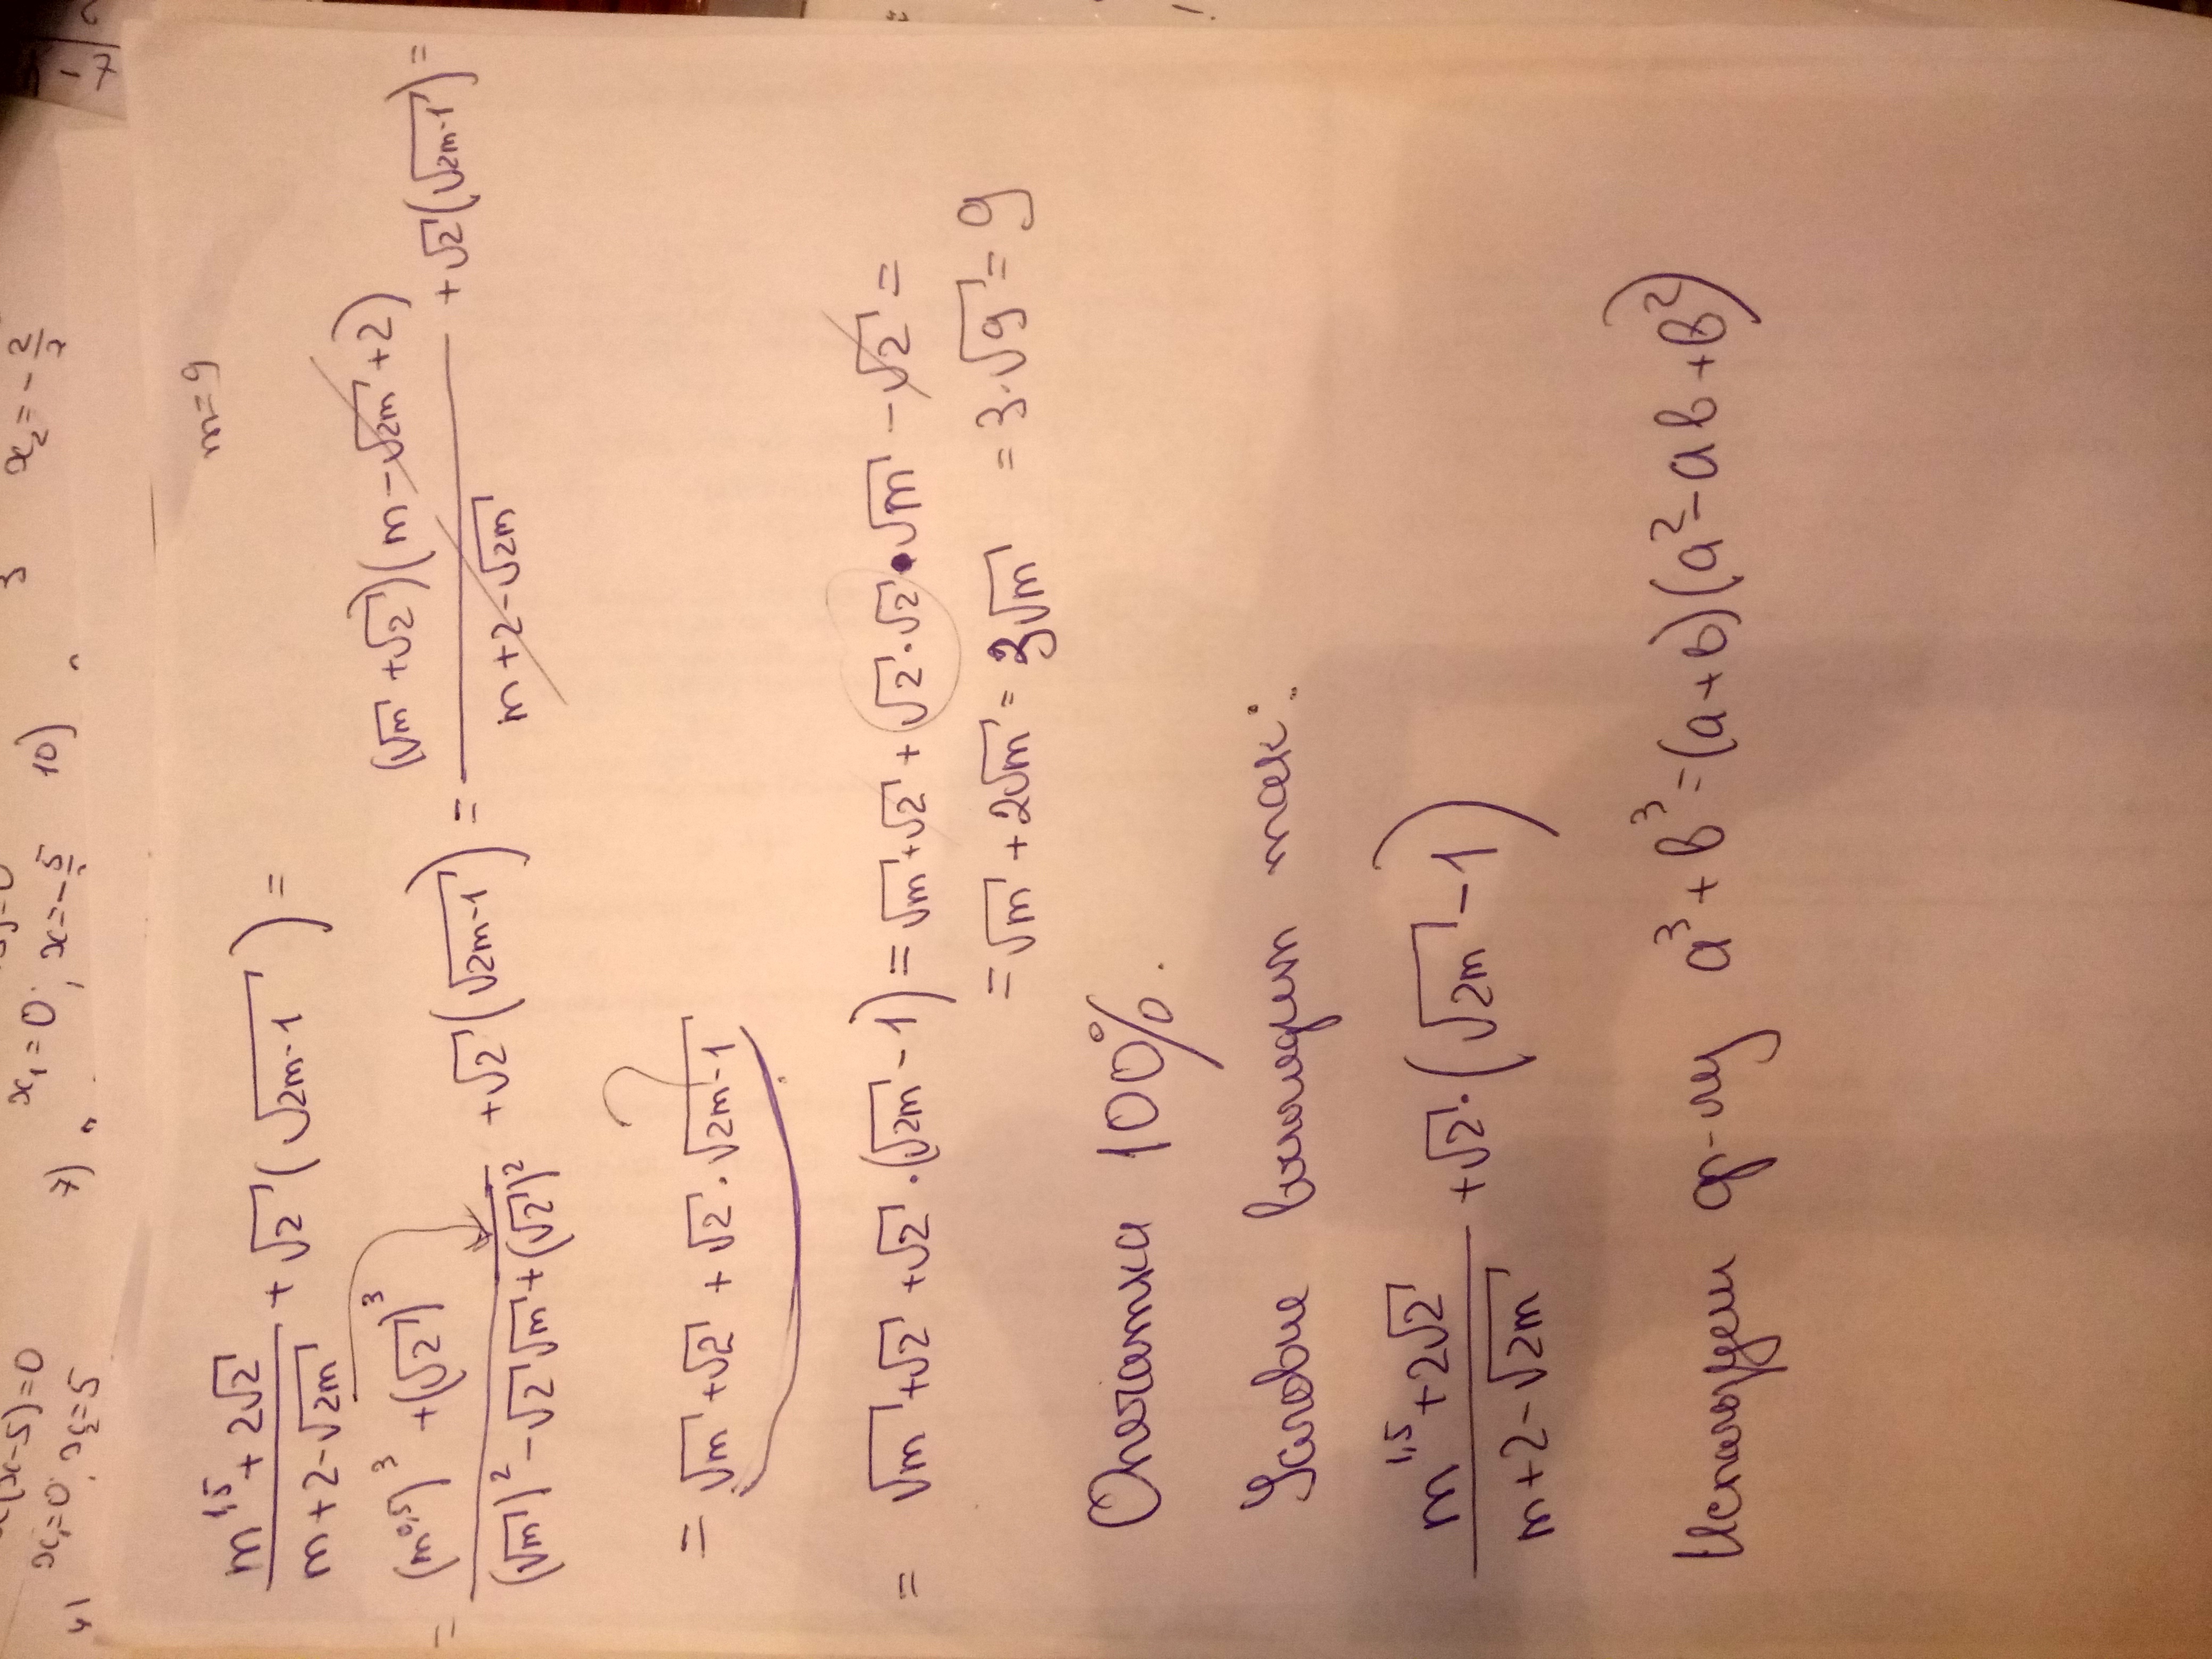 -7
3 x₂ = -2/7
x₁ = 0; x = -5/
7) 10)
(x-5)=0
x₁=0; x₂=5
4)
m=9
(m^1,5 + 2√2)/(m+2-√2m) + √2(√(2m-1)) =
= ((m^0,5)³ + (√2)³)/((√m)² - √2√m + (√2)²) + √2(√(2m-1)) = ((√m+√2)(m-√2m+2))/(m+2-√2m) + √2(√(2m-1)) =
= √m+√2 + √2·√(2m-1) ?
= √m+√2+√2·(√2m-1) = √m+√2+√2·√2·√m-√2 =
= √m+2√m = 3√m = 3·√9 = 9
Опечатка 100%.
Условие выглядит так:
(m^1,5 + 2√2)/(m+2-√2m) + √2·(√2m-1)
Используем ф-лу a³+b³=(a+b)(a²-ab+b²)